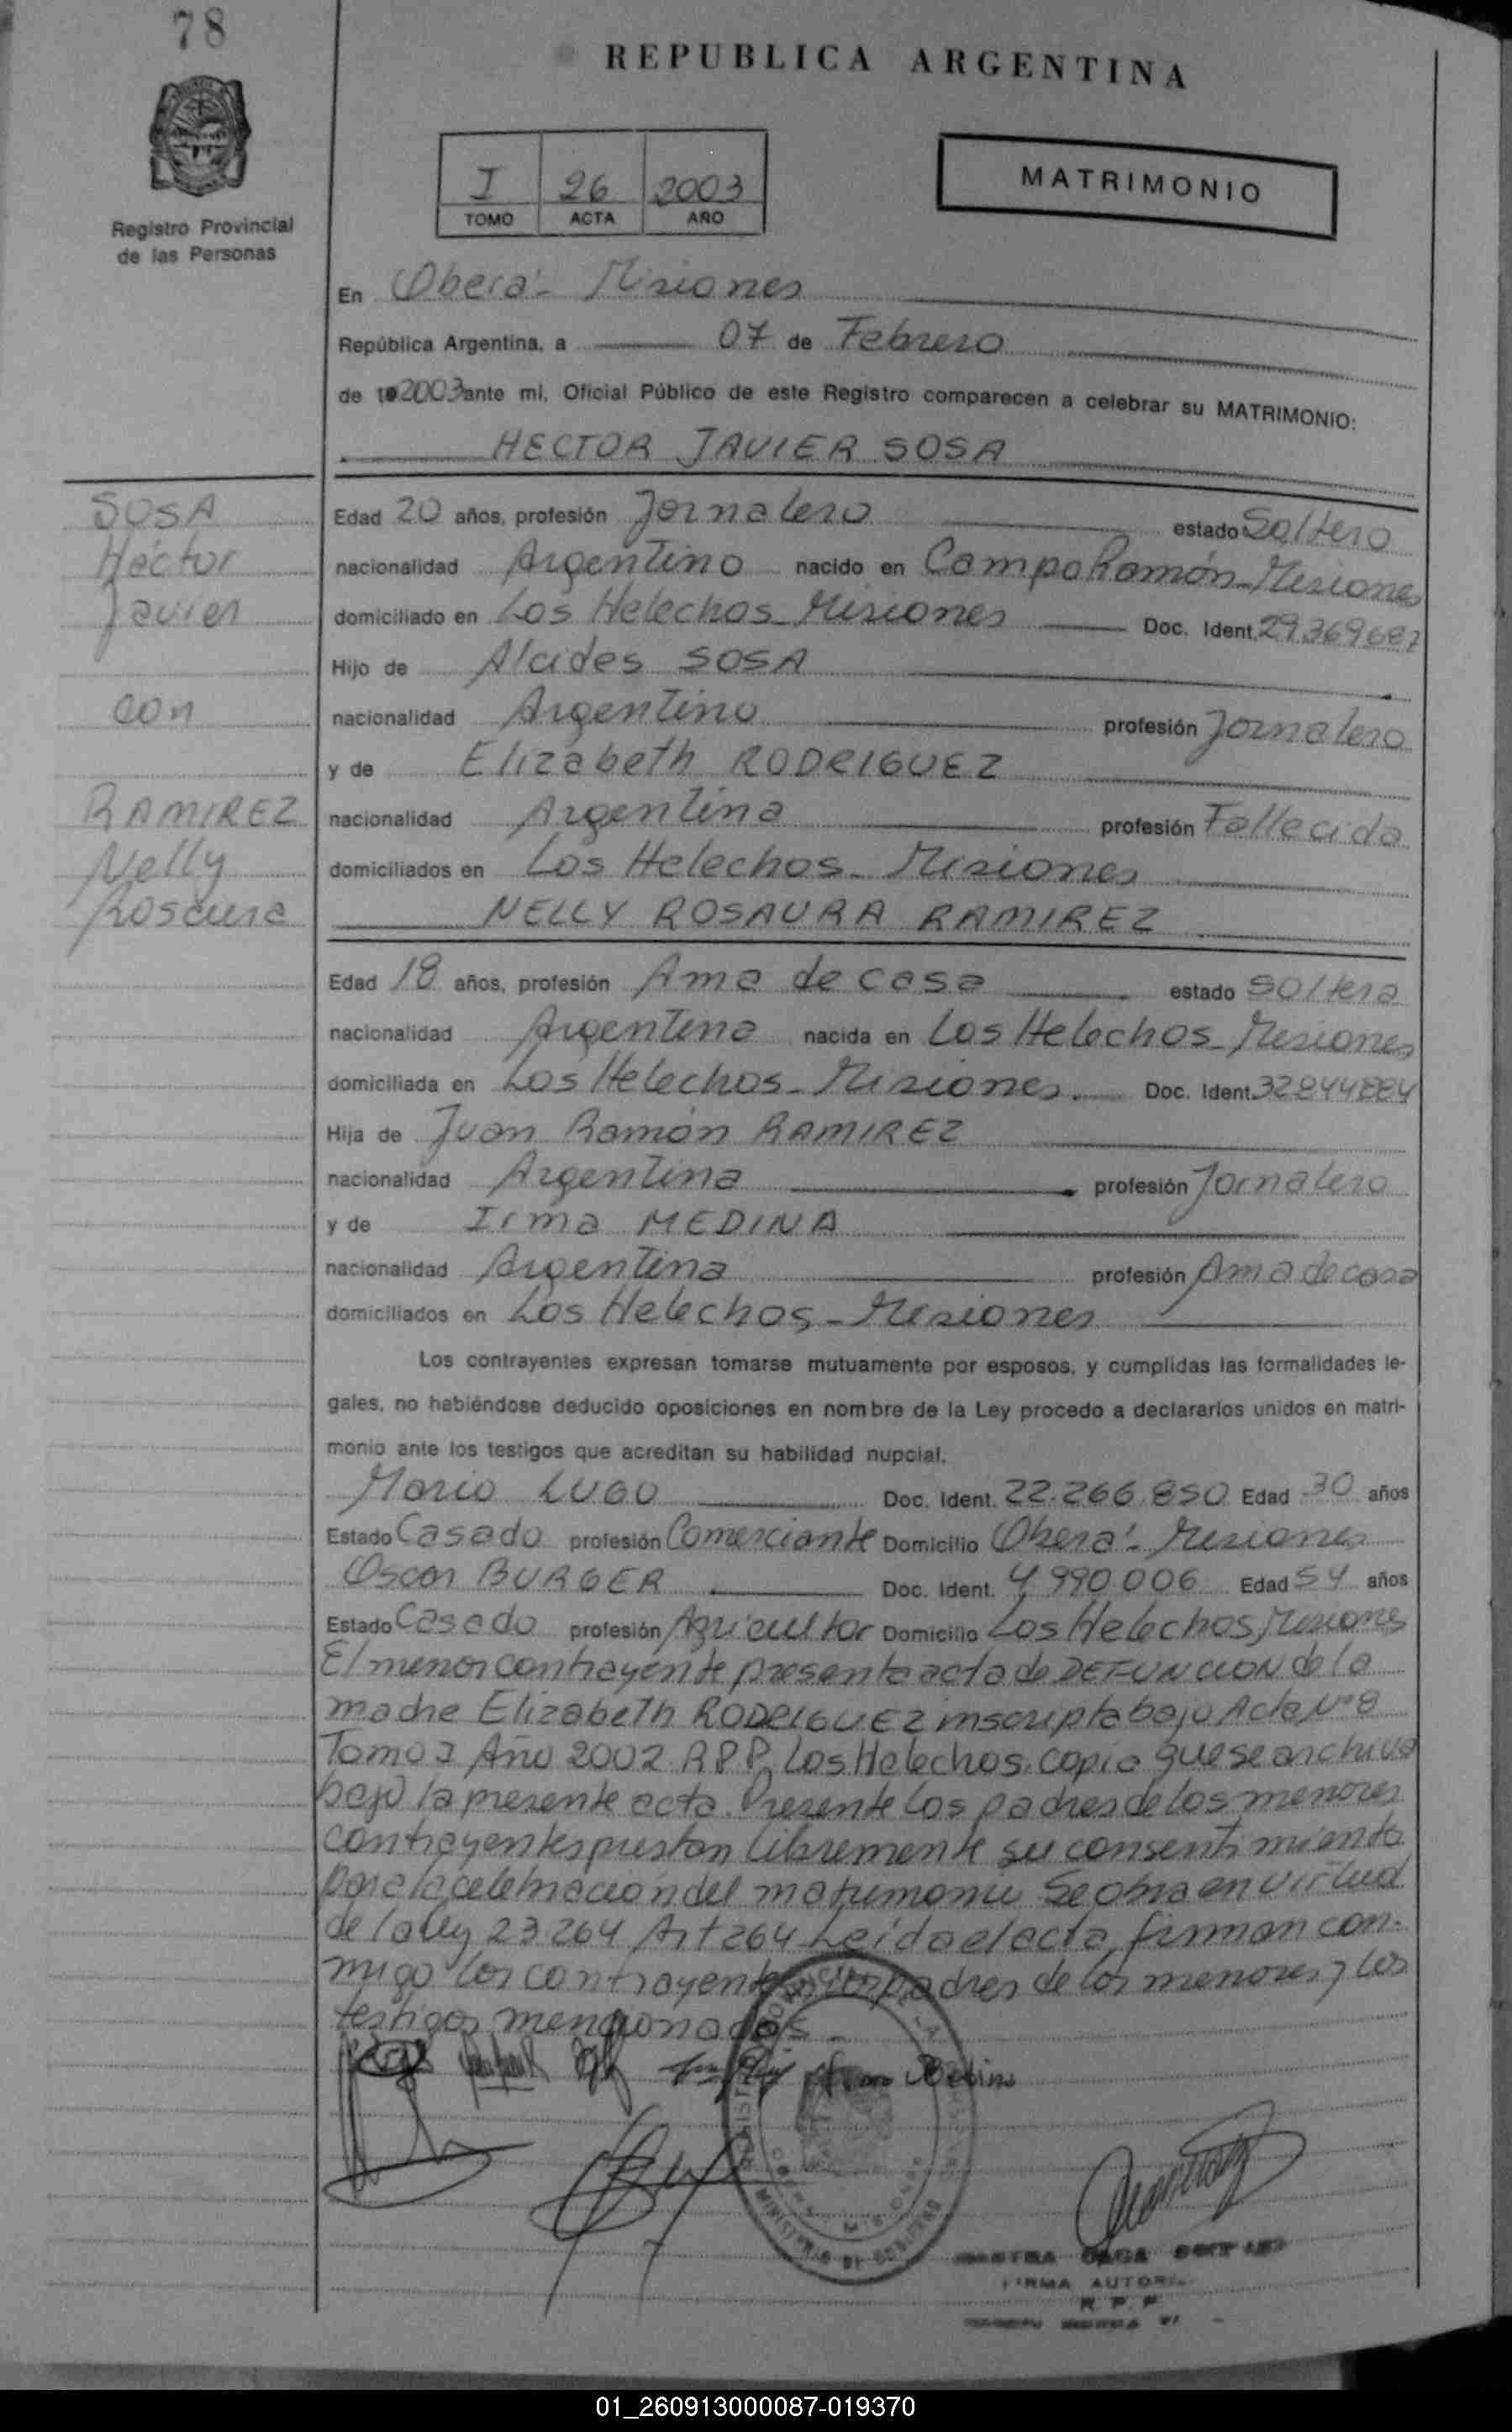 78
REPUBLICA ARGENTINA
I 26 2003
TOMO ACTA AÑO
MATRIMONIO
Registro Provincial
de las Personas
En Oberá - Misiones
República Argentina, a 07 de Febrero
de 2003 ante mi, Oficial Público de este Registro comparecen a celebrar su MATRIMONIO:
HECTOR JAVIER SOSA
SOSA
Héctor
Javier
con
RAMIREZ
Nelly
Rosaura
Edad 20 años, profesión Jornalero estado Soltero
nacionalidad Argentino nacido en Campo Ramón - Misiones
domiciliado en Los Helechos - Misiones Doc. Ident. 29.369.687
Hijo de Alcides SOSA
nacionalidad Argentino profesión Jornalero
y de Elizabeth RODRIGUEZ
nacionalidad Argentina profesión Fallecida
domiciliados en Los Helechos - Misiones
NELLY ROSAURA RAMIREZ
Edad 18 años, profesión Ama de casa estado soltera
nacionalidad Argentina nacida en Los Helechos - Misiones
domiciliada en Los Helechos - Misiones. Doc. Ident. 32844884
Hija de Juan Ramón RAMIREZ
nacionalidad Argentina profesión Jornalero
y de Irma MEDINA
nacionalidad Argentina profesión Ama de casa
domiciliados en Los Helechos - Misiones
Los contrayentes expresan tomarse mutuamente por esposos, y cumplidas las formalidades le-
gales, no habiéndose deducido oposiciones en nombre de la Ley procedo a declararlos unidos en matri-
monio ante los testigos que acreditan su habilidad nupcial.
Mario LUGO Doc. Ident. 22.266.850 Edad 30 años
Estado Casado profesión Comerciante Domicilio Oberá - Misiones
Oscar BURGER Doc. Ident. 4.990.006 Edad 54 años
Estado Casado profesión Agricultor Domicilio Los Helechos, Misiones
El menor contrayente presenta acta de DEFUNCION de la
madre Elizabeth RODRIGUEZ inscripta bajo Acta Nº 8
Tomo I Año 2002 R.P.P. Los Helechos, copia que se archiva
bajo la presente acta. Presente los padres de los menores
contrayentes prestan libremente su consentimiento
para la celebracion del matrimonio. Se obra en virtud
de la ley 23.264 Art 264 - Leída el acta, firman con-
migo los contrayentes, los padres de los menores y los
testigos mencionados.
MINISTERIO DE GOBIERNO
FIRMA AUTORI
R. P. P.
01_260913000087-019370